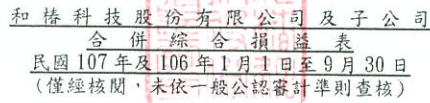 和椿科技股份有限公司及子公司
合併綜合損益表
民國107年及106年1月1日至9月30日
(僅經核閱,未依一般公認審計準則查核)